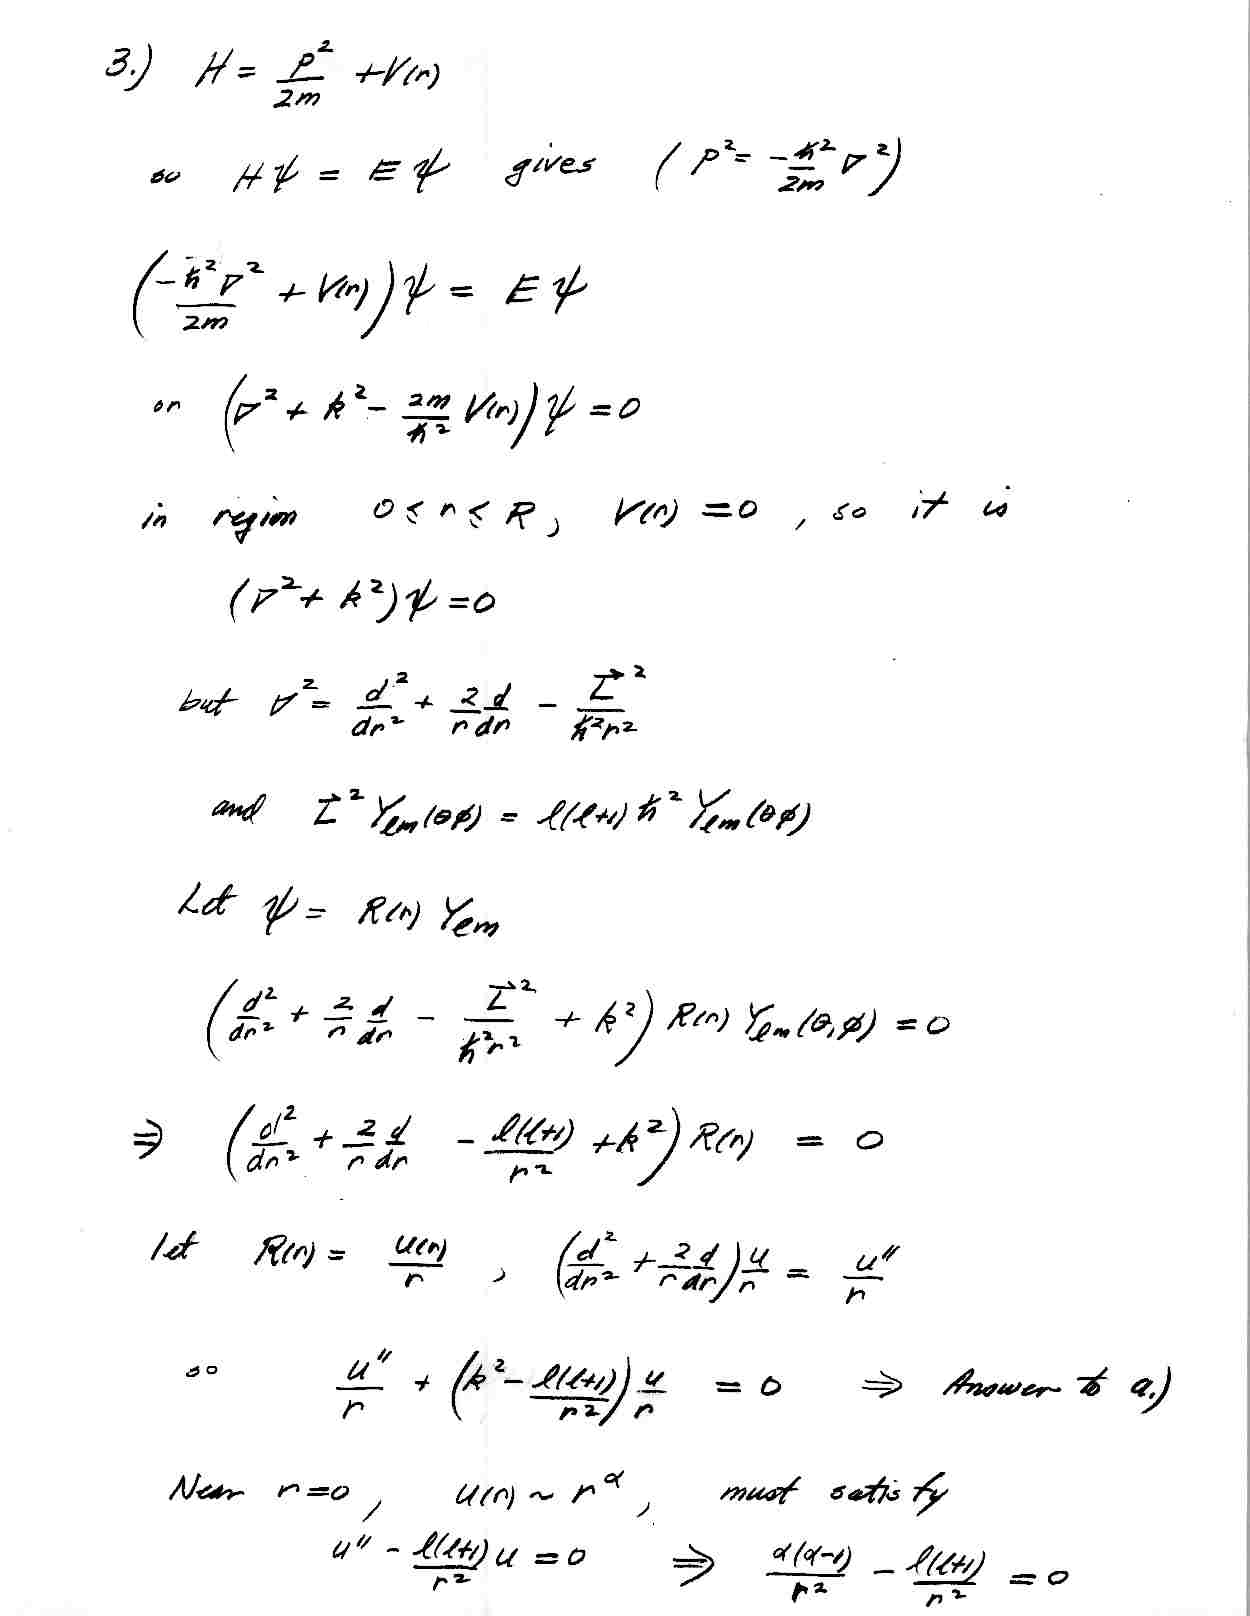 3.) H = p²/2m + V(r)
so Hψ = Eψ gives ( p² = -ħ²/2m ∇²)
(-ħ²∇²/2m + V(r))ψ = Eψ
or (∇² + k² - 2m/ħ² V(r))ψ = 0
in region 0 ≤ r ≤ R, V(r) = 0, so it is
(∇² + k²)ψ = 0
but ∇² = d²/dr² + 2/r d/dr - L⃗²/ħ²r²
and L⃗² Yℓm(θφ) = ℓ(ℓ+1) ħ² Yℓm(θφ)
Let ψ = R(r) Yℓm
(d²/dr² + 2/r d/dr - L⃗²/ħ²r² + k²) R(r) Yℓm(θ,φ) = 0
⇒ (d²/dr² + 2/r d/dr - ℓ(ℓ+1)/r² + k²) R(r) = 0
let R(r) = u(r)/r , (d²/dr² + 2/r d/dr) u/r = u''/r
so u''/r + (k² - ℓ(ℓ+1)/r²) u/r = 0 ⇒ Answer to a.)
Near r=0, u(r) ~ r^α, must satisfy
u'' - ℓ(ℓ+1)/r² u = 0 ⇒ α(α-1)/r² - ℓ(ℓ+1)/r² = 0